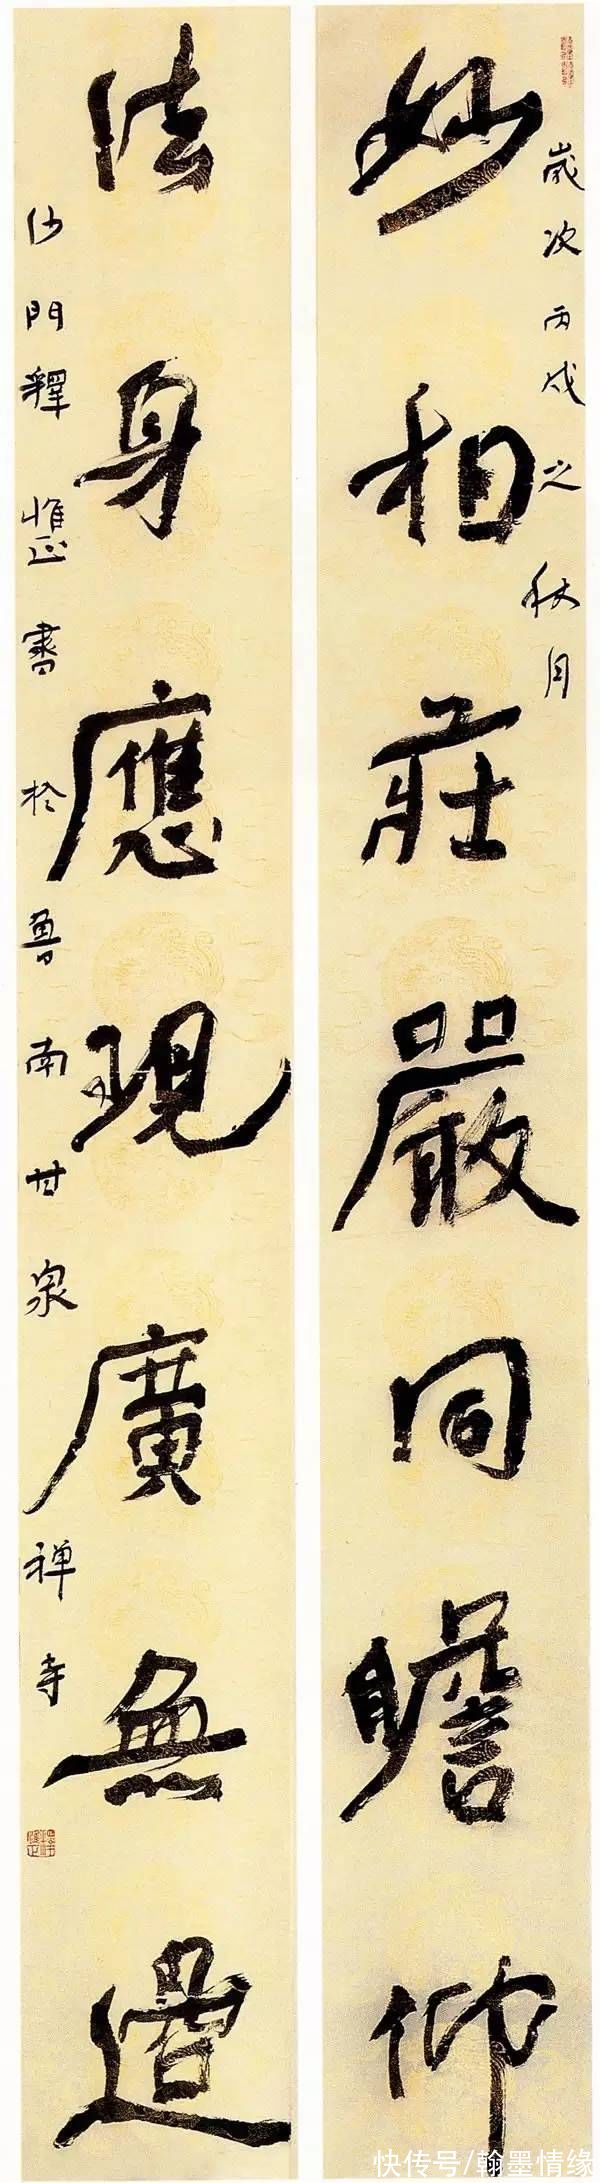 歲次丙戌之秋月
妙相莊嚴同瞻仰
法身應現廣無邊
沙門釋惟正書於魯南甘泉禅寺
快传号/翰墨情缘